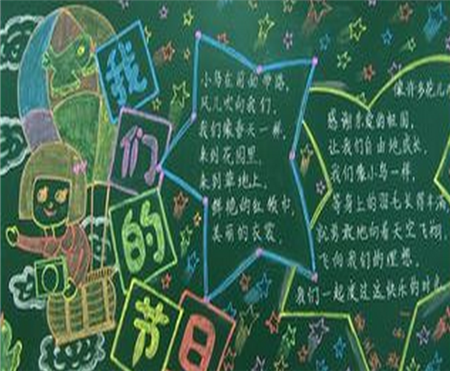 我们的节日
小鸟在前面带路,
风儿吹向我们,
我们像春天一样,
来到花园里,
来到草地上,
鲜艳的红领巾,
美丽的衣裳,
像许多花儿
感谢亲爱的祖国,
让我们自由地成长,
我们像小鸟一样,
等身上的羽毛长得丰满
就勇敢地向着天空飞翔,
飞向我们的理想,
我们一起度过这快乐的时